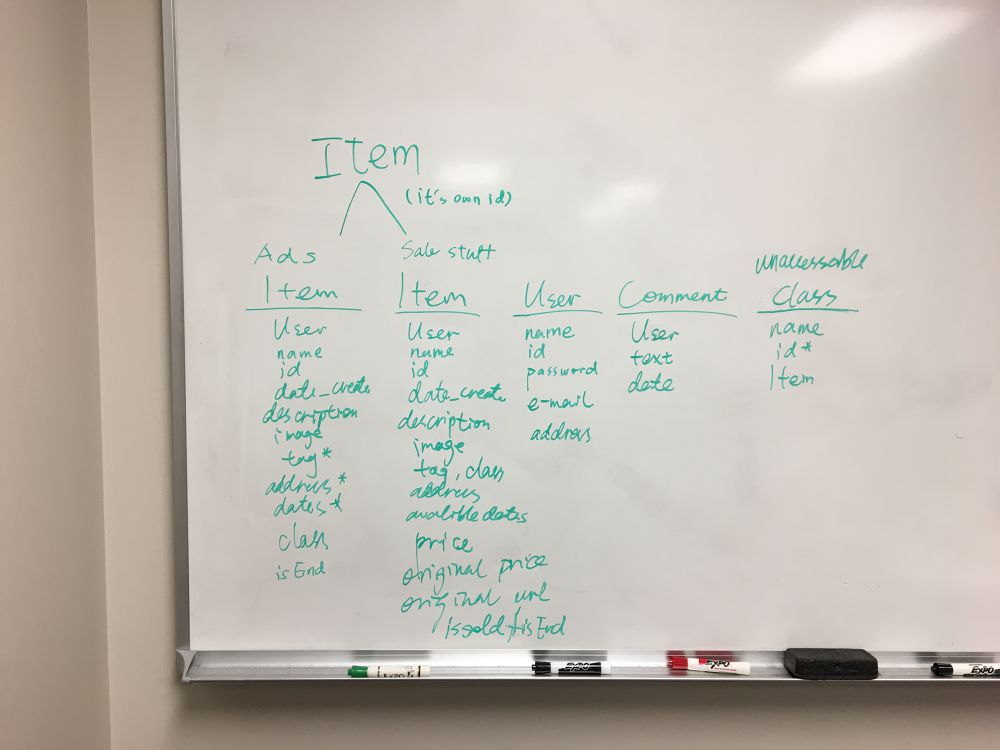 Item
(it's own id)
Ads
Item
User
name
id
date_create
description
image
tag*
address*
dates*
class
isEnd
Sale stuff
Item
User
name
id
date_create
description
image
tag, class
address
avalible dates
price
original price
original url
issold / isEnd
User
name
id
password
e-mail
address
Comment
User
text
date
unaccessable
class
name
id*
Item
EXPO
EXPO
EXPO
EXPO